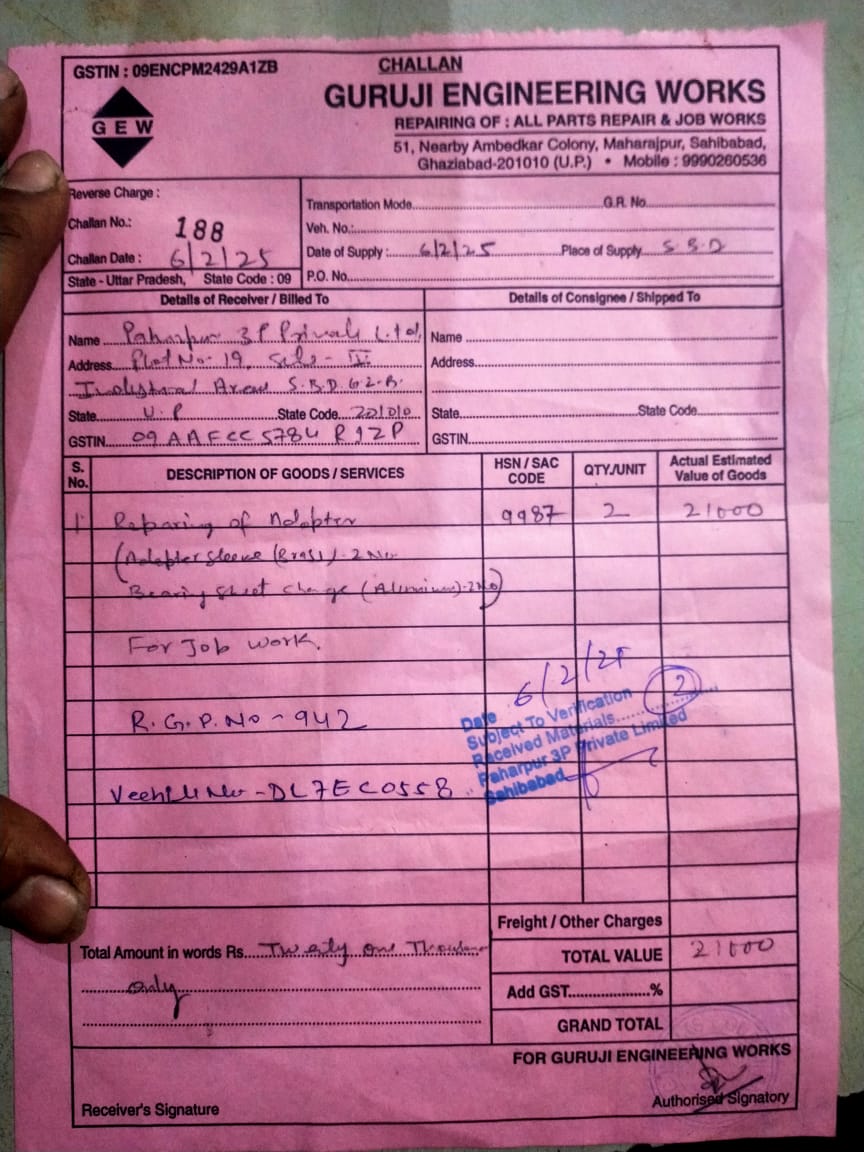 GSTIN : 09ENCPM2429A1ZB
CHALLAN
GEW
GURUJI ENGINEERING WORKS
REPAIRING OF : ALL PARTS REPAIR & JOB WORKS
51, Nearby Ambedkar Colony, Maharajpur, Sahibabad,
Ghaziabad-201010 (U.P.) • Mobile : 9990260536
Reverse Charge :
Challan No.: 188
Challan Date : 6/2/25
State - Uttar Pradesh, State Code : 09
Transportation Mode G.R. No
Veh. No.:
Date of Supply : 6/2/25 Place of Supply S.B.D
P.O. No.
Details of Receiver / Billed To
Name Paharpur 3P Private Ltd,
Address Plot No. 19, Site -
Areas S.B.D. G.Z.B.
State U.P State Code 201010
GSTIN
Details of Consignee / Shipped To
Name
Address
State State Code
GSTIN
S. No. DESCRIPTION OF GOODS / SERVICES HSN / SAC CODE QTY./UNIT Actual Estimated Value of Goods
1 Reparing of Adapter 9987 2 21000
(Adapter Sleeve - 2 No
Bearing Sheet change
For Job work.
R.G.P. No - 942
No - DL7EC0558
Date 6/2/25
Subject To Verification
Received Materials 2
Paharpur 3P Private Limited
Sahibabad
Freight / Other Charges
Total Amount in words Rs. Twenty one Thousand
only
TOTAL VALUE 21000
Add GST %
GRAND TOTAL
FOR GURUJI ENGINEERING WORKS
Receiver's Signature
Authorised Signatory